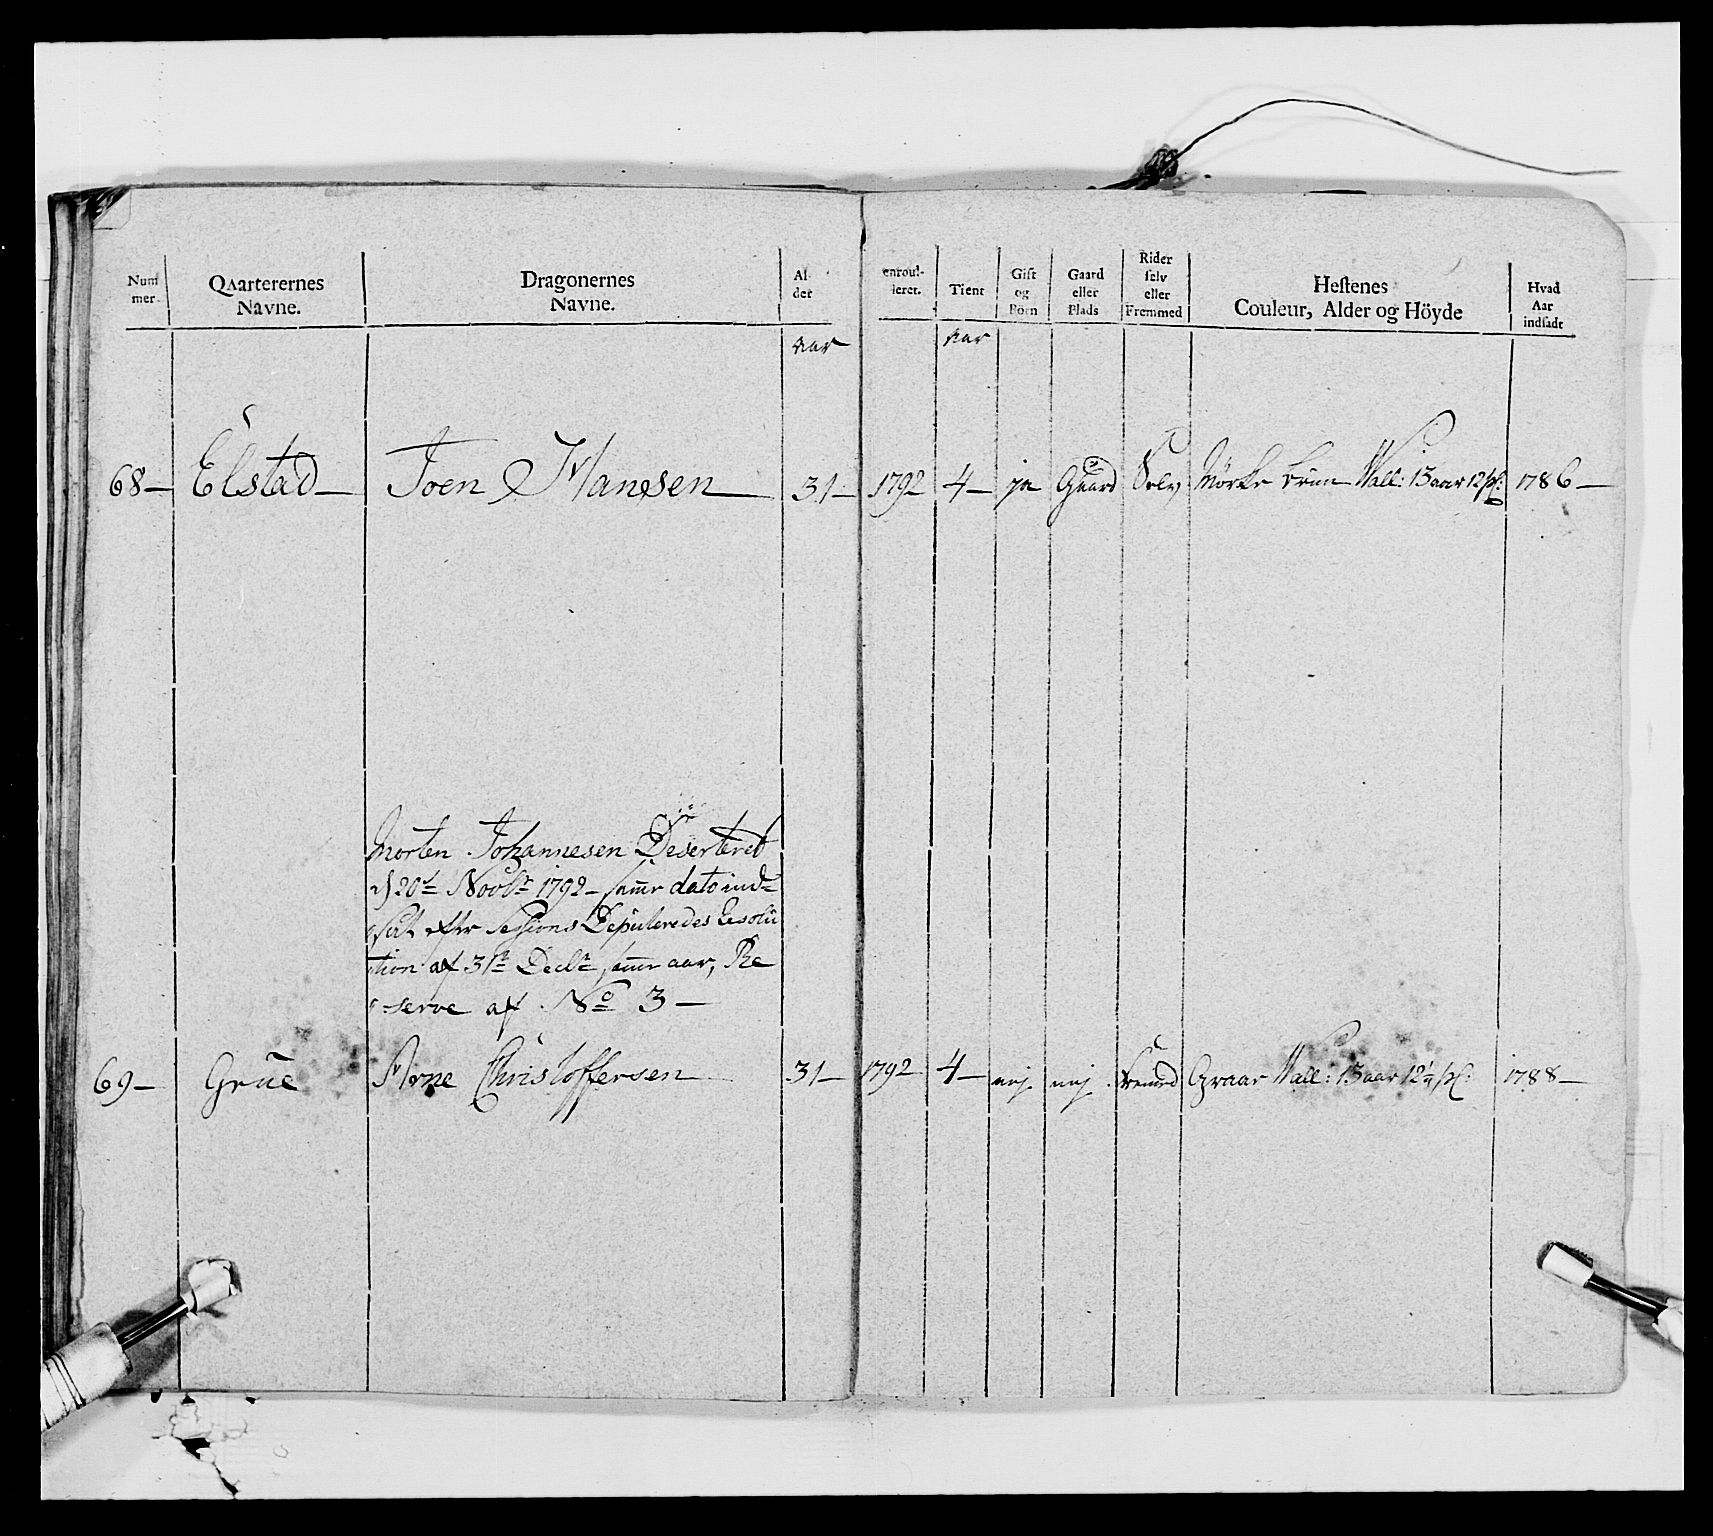 Num mer. Qvarterernes Navne. Dragonernes Navne. Al der enroul- leret. Tient Gift og Börn Gaard eller Plads Rider selv eller Fremmed Hestenes Couleur, Alder og Höyde Hvad Aar indsadt
Aar Aar
68— Elstad— Joen Hansen 31— 1792 4— ja Gaard Selv Mörke brun Wall: 13 aar 12 1786—
Morten Johannesen Deserteret
d 20de Novbr 1792— samme dato ind=
sat efter Sessions Deputeredes Resolu
tion af 31te Decbr samme aar, Re
serve af No 3—
69— Grue Arne Christoffersen 31— 1792 4— nej nej fremed Graar Wall: 13 aar 12¼ 1788—